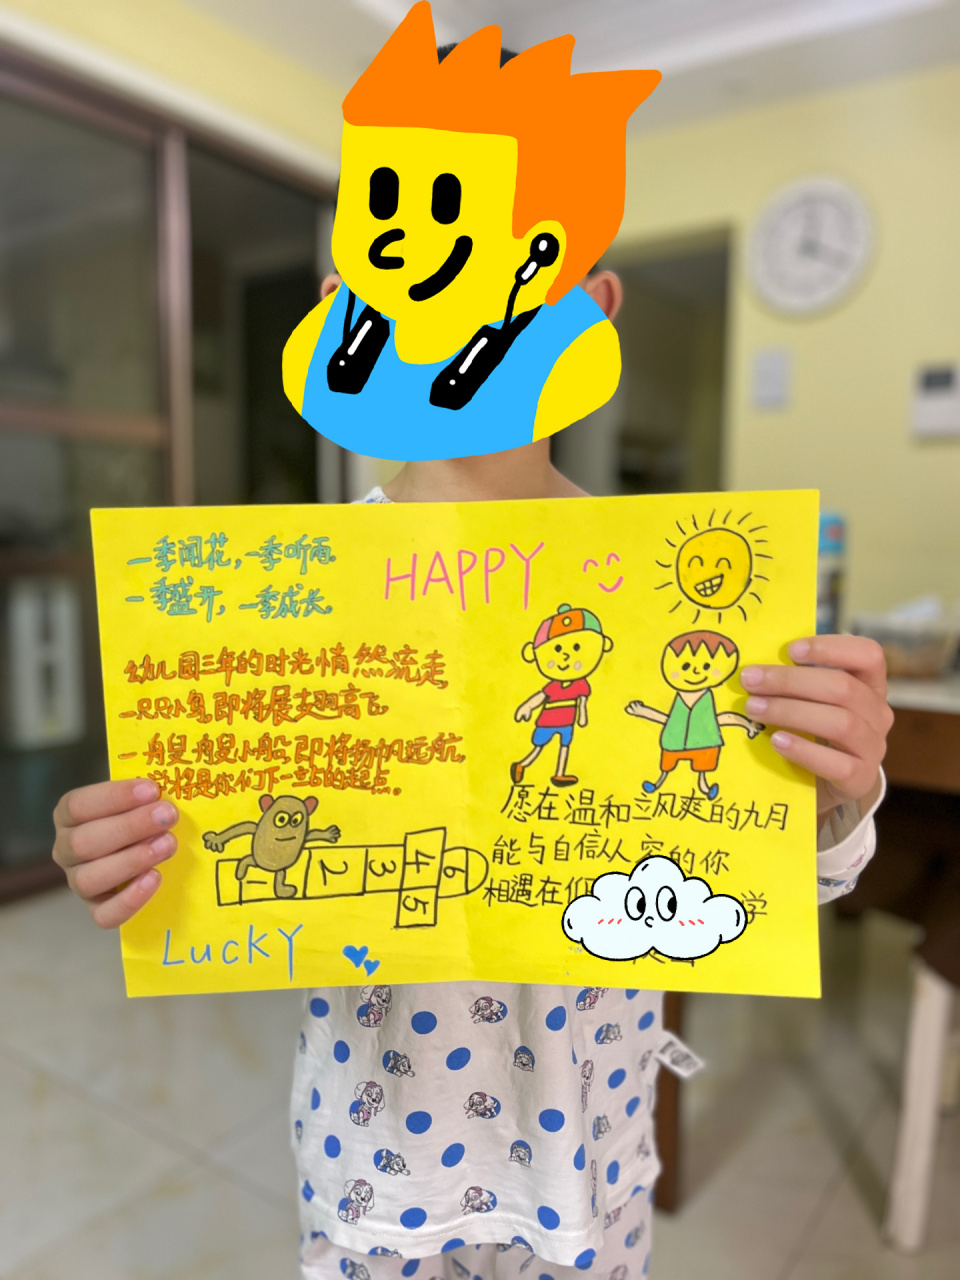 一季闻花，一季听雨
一季盛开，一季成长。
幼儿园三年的时光悄然流走
一只只小鸟,即将展翅高飞
一艘艘小船,即将扬帆远航
学将是你们下一站的起点……。
1
2
3
4
5
6
LUCKY
HAPPY
愿在温和立风爽的九月
能与自信从容的你
相遇在
学